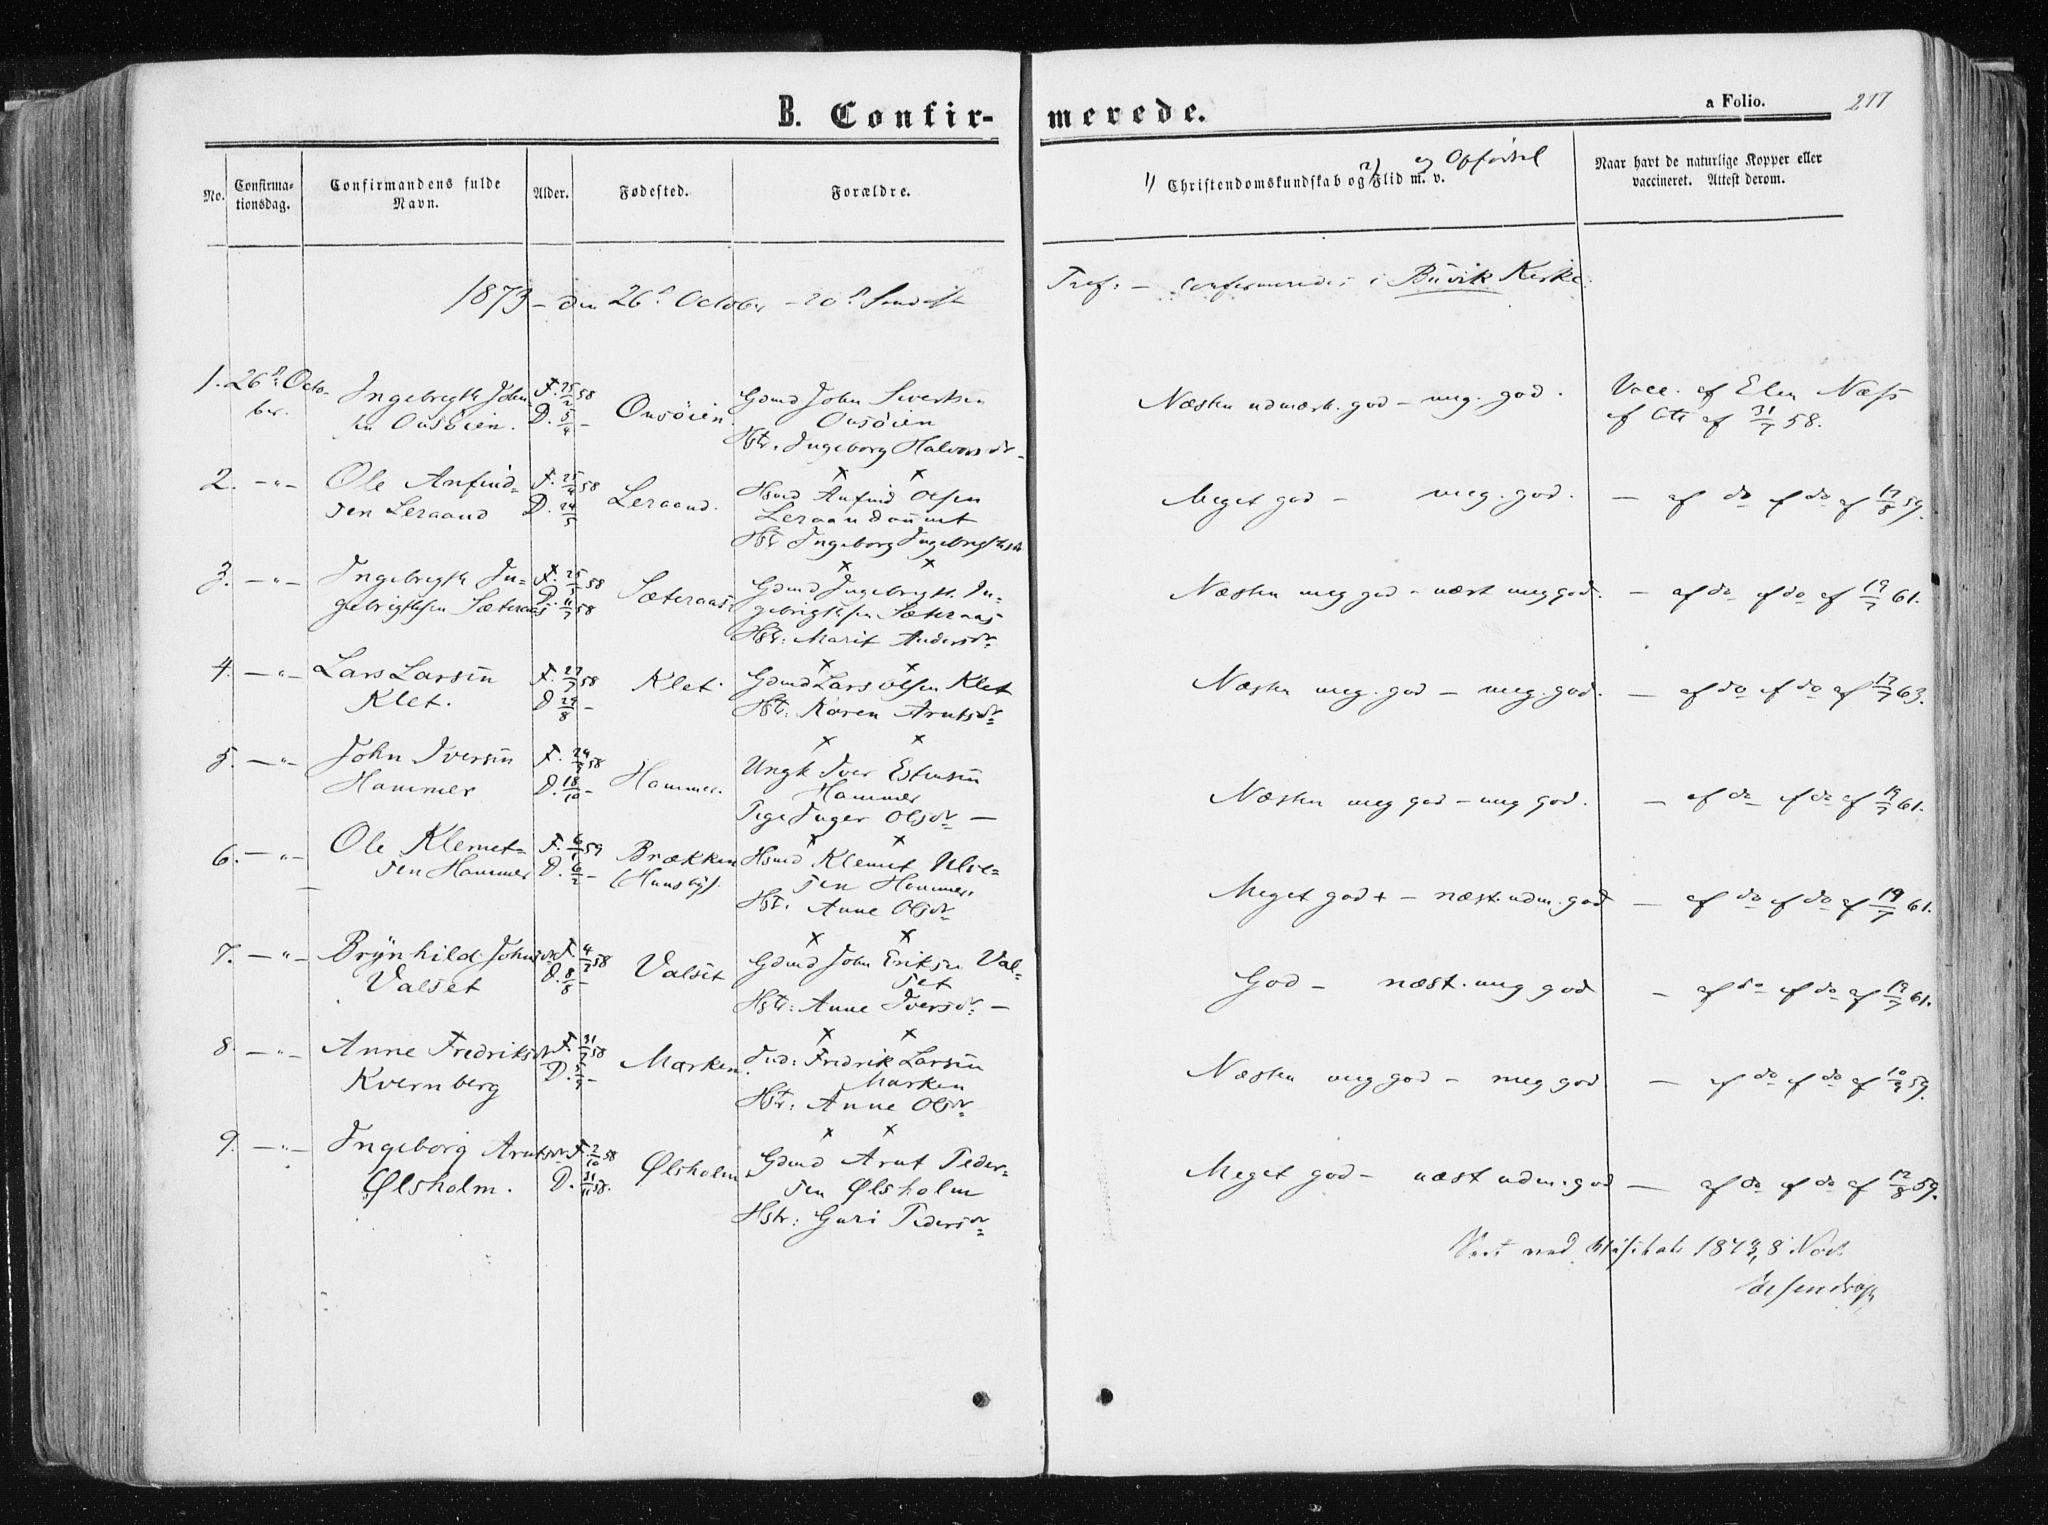 B. Confir-
merede.
a Folio.
217
No.
Confirma-
tionsdag.
Confirmandens fulde
Navn.
Alder.
Fødested.
Forældre.
1/ Christendomskundskab og 2/ Flid m. v. og Opførsel
Naar havt de naturlige Kopper eller
vaccineret. Attest derom.
1873 – den 26de October – 20de
Tref: – confirmeredes i Büvik Kirke.
1. 26de Octo-
ber.
Ingebrigt John-
sen Onsöien.
F. 25/2 58
D. 5/4 –
Onsöien.
Gdmd John Sivertsen
Onsöien
Hstr. Ingeborg Halvorsdr
Næsten udmærk. god – meg. god.
Vacc. af Elen Næss
f Att af 31/7 58.
2. – " –
Ole Anfind-
sen Leraand
F. 25/4 58
D. 24/5
Leraand.
Hsmd Anfind Olsen
Leraandaunet
Hst Ingeborg Ingebrigtsdr
Meget god – meg. god.
– af do f do af 17/8 59.
3. – " –
Ingebrigt In-
gebrigtsen Sæteraas
F. 25/5 58
D. 11/7 58
Sæteraas
Gdmd Ingebrigt In-
gebrigtsen Sæteraas
Hstr: Marit Andersdr
Næsten meg god – næst meg god.
– af do f do af 19/7 61.
4. – " –
Lars Larsen
Klet.
F. 27/7 58
D 29/8 –
Klet
Gdmd Lars Olsen Klet
Hst: Karen Arntsdr
Næsten meg. god – meg. god.
– af do f do af 17/7 63.
5. – " –
John Iversen
Hammer
D. 18/10 –
Hammer.
Ungk Iver Estensen
Hammer
Pige Inger Olsdr –
Næsten meg god – meg god.
– af do f do af 19/7 61.
6. – " –
Ole Klemet-
sen Hammer
F. 6/1 59
D. 6/2 –
Brækken
Hsmd Klemet
sen Hammer
Hst. Anne Olsdr
Meget god + – næst. udm. god
– af do f do af 19/7 61.
7. – " –
Brynhild Johnsdr
Valset
F. 4/7 58
D. 8/8 –
Valset
Gdmd John Eriksen Val-
set
Hstr: Anne Iversdr –
God – næst. meg god
– af do f do af 19/7 61.
8. – " –
Anne Fredriksdr
Kvernberg
F. 31/7 58
D. 5/9 –
Marken.
Ind: Fredrik Larsen
Marken
Hstr: Anne Olsdr
Næsten meg god – meg god
– af do f do af 10/9 59.
9. – " –
Ingeborg Arntsdr
Ølsholm.
F. 2/10 58
D. 21/11 58.
Ølsholm
Gdmd Arnt Peder-
sen Ølsholm
Hstr: Guri Pedersdr
Meget god – næst udm. god
– af do f do af 12/8 59.
ved 1873, 8 Novb